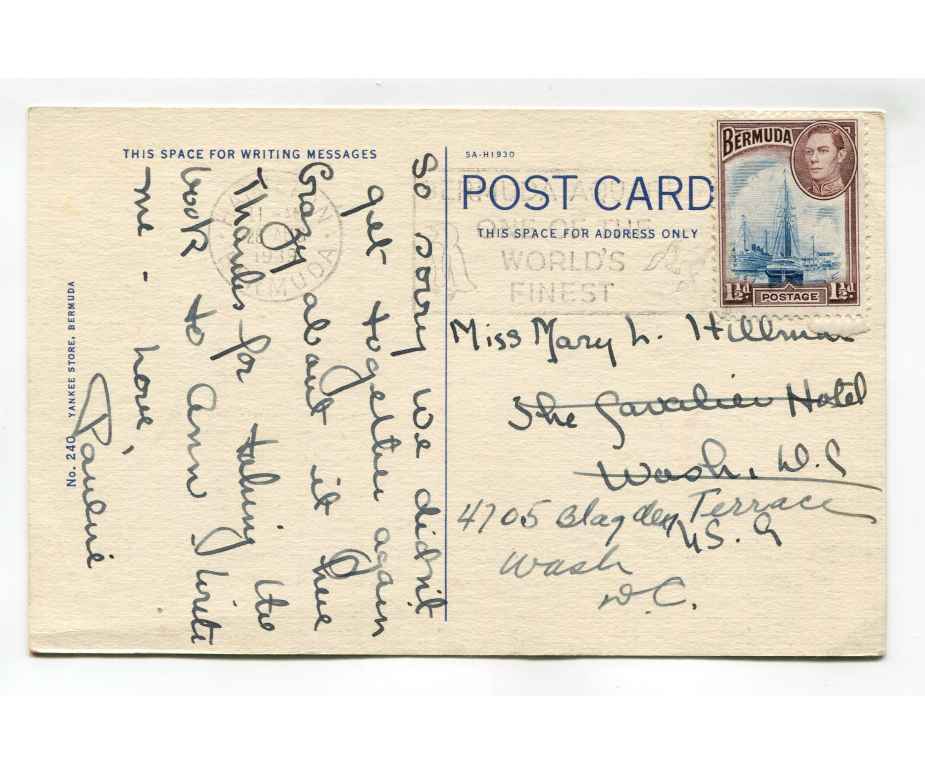 THIS SPACE FOR WRITING MESSAGES
So sorry we didn't
get together again
Crazy about it here
Thanks for taking the
book to Ann. Write
me - Love,
Pauline
No. 240 YANKEE STORE, BERMUDA
SA-H1930
POST CARD
THIS SPACE FOR ADDRESS ONLY
ONE OF THE
WORLD'S
FINEST
BERMUDA
1½d POSTAGE 1½d
Miss Mary L. Hillman
The Cavalier Hotel
Wash, D.C
U.S.A
4705 Blagden Terrace
Wash
D.C.